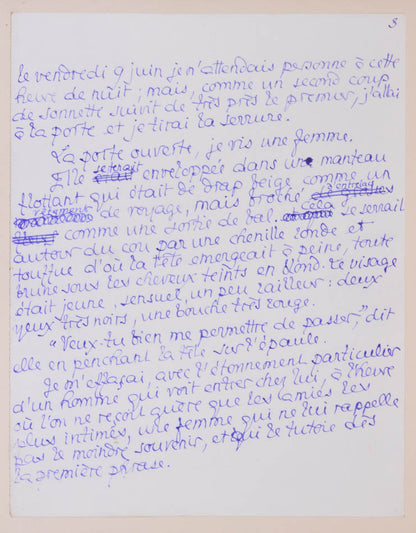 3
le vendredi 9 juin je n'attendais personne à cette
heure de nuit ; mais, comme un second coup
de sonnette suivit de très près le premier, j'allai
à la porte et je tirai la serrure.
La porte ouverte, je vis une femme.
Elle se tenait enveloppée dans un manteau
flottant, qui était de drap beige comme un
vêtement de voyage, mais broché,
comme une sortie de bal. Cela se serrait
autour du cou par une chenille ronde et
touffue d'où la tête émergeait à peine, toute
brune sous les cheveux teints en blond. Le visage
était jeune, sensuel, un peu railleur : deux
yeux très noirs, une bouche très rouge.
"Veux-tu bien me permettre de passer," dit
elle en penchant la tête sur l'épaule.
Je m'effaçai, avec l'étonnement particulier
d'un homme qui voit entrer chez lui, à l'heure
où l'on ne reçoit guère que les amies les
plus intimes, une femme qui ne lui rappelle
pas le moindre souvenir, et qui le tutoie dès
la première phrase.